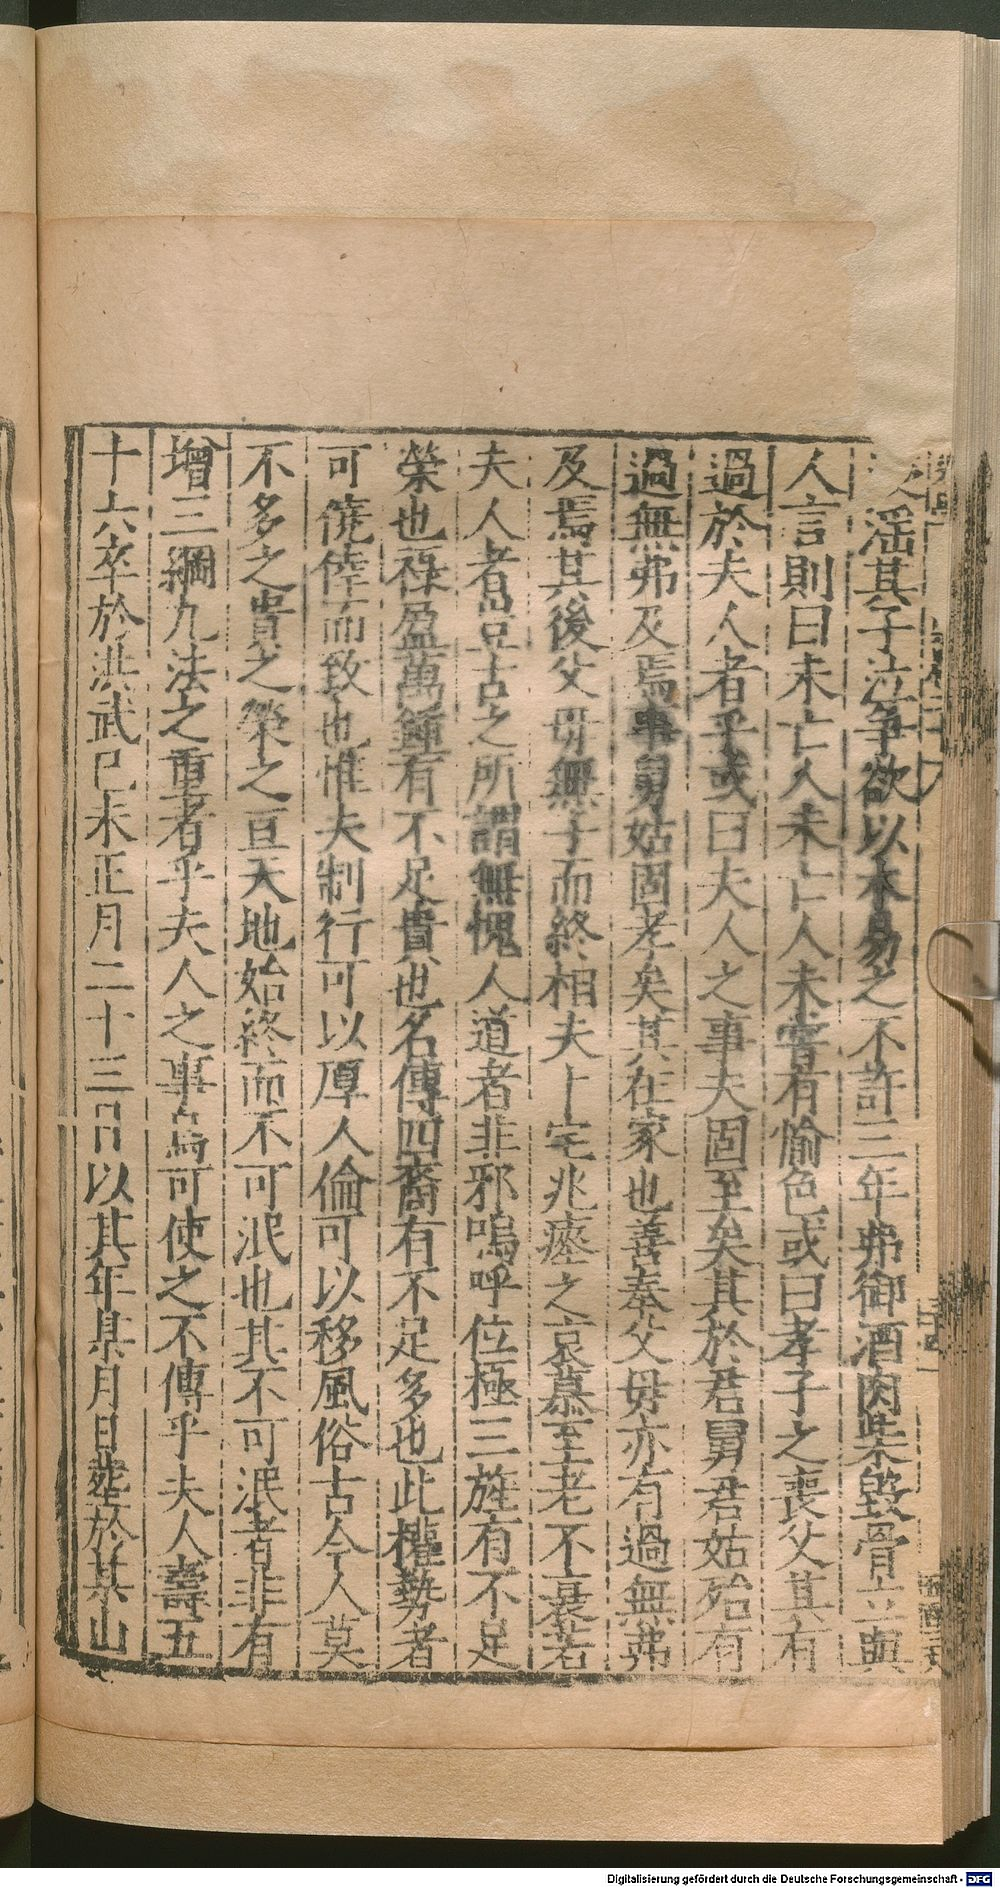 淫其子泣爭欲以木易之不許三年弗御酒肉柴毀骨立與
人言則曰未亡人未亡人未嘗有愉色或曰孝子之喪父其有
過於夫人者乎或曰夫人之事夫固至矣其於君舅君姑殆有
過無弗及焉事舅姑固孝矣其在家也善奉父母亦有過無弗
及焉其後父母無子而終相夫卜宅兆瘞之哀慕至老不衰若
夫人者豈古之所謂無愧人道者非邪嗚呼位極三旌有不足
榮也祿盈萬鍾有不足貴也名傳四裔有不足多也此權勢者
可僥倖而致也惟夫制行可以厚人倫可以移風俗古今人莫
不多之貴之榮之亘天地始終而不可泯也其不可泯者非有
增三綱九法之重者乎夫人之事烏可使之不傳乎夫人壽五
十六卒於洪武己未正月二十三日以其年某月日葬於某山
Digitalisierung gefördert durch die Deutsche Forschungsgemeinschaft - DFG